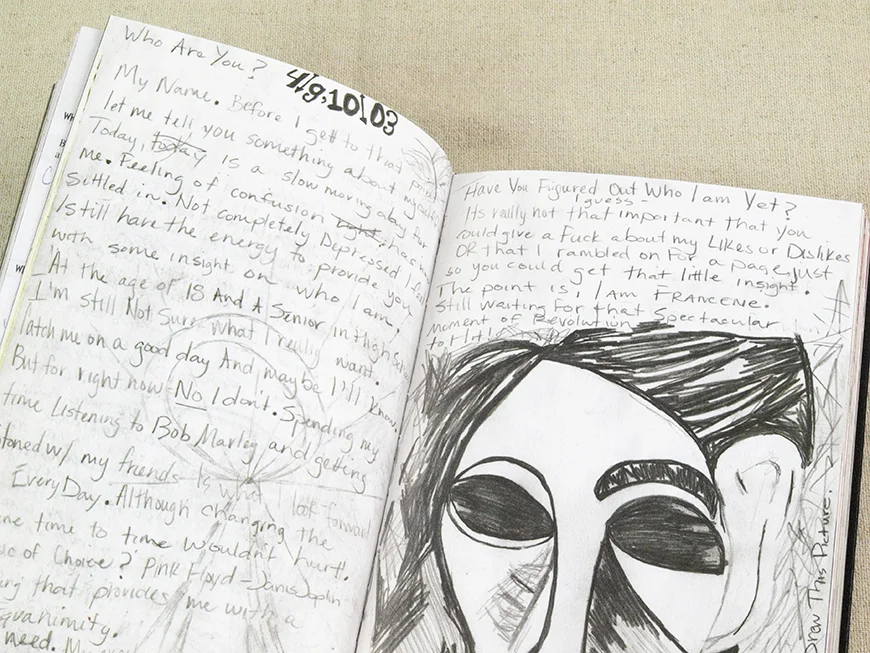 Who Are You?
4/9,10/03
My Name. Before I get to that point
let me tell you something about myself.
Today, today is a slow moving day for
me. Feeling of confusion has
Settled in. Not completely Depressed I
still have the energy to provide you
with some insight on who I am.
At the age of 18 And A Senior in High
I'm still Not Sure what I really want.
Catch me on a good day And maybe I'll know.
But for right now No, I don't. Spending my
time Listening to Bob Marley and getting
stoned w/ my friends Is what I look forward
Every Day. Although changing the
time to time wouldn't hurt!
of Choice? Pink Floyd - Janis Joplin
that provides me with a
equanimity.
need.
Have You Figured Out Who I am Yet?
I guess -
Its really not that important that you
could give a Fuck about my Likes or Dislikes
OR that I rambled on For a page, just
so you could get that little insight.
The point is, I Am FRANCENE.
Still Waiting For that Spectacular
moment of Revolution
to
Draw This Picture.